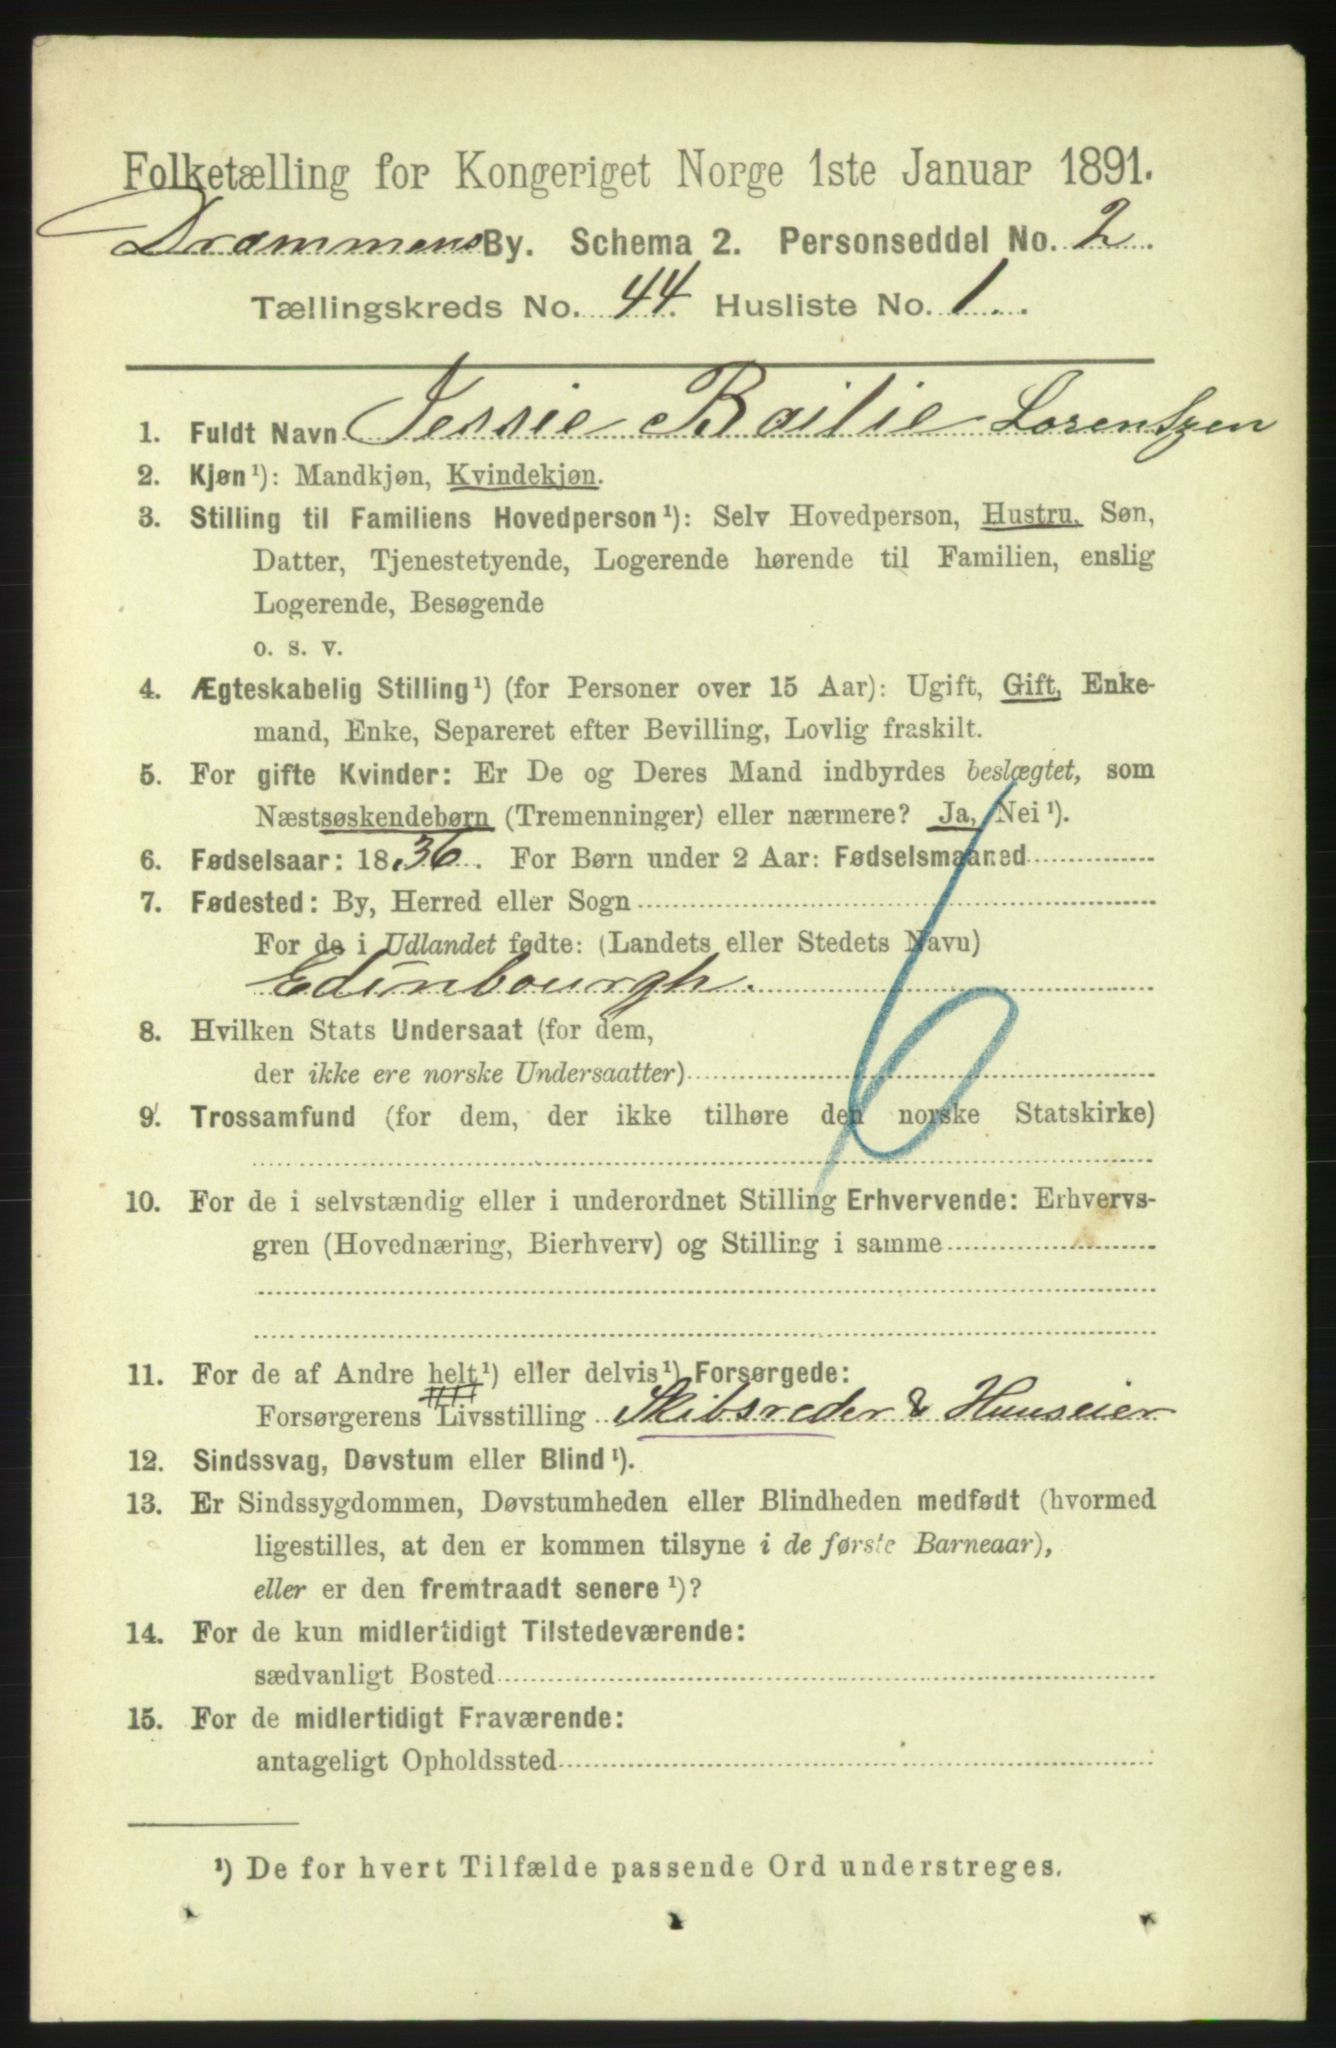 Folketælling for Kongeriget Norge 1ste Januar 1891.
Drammens By. Schema 2. Personseddel No. 2.
Tællingskreds No. 44. Husliste No. 1.
1. Fuldt Navn Jessie Bailie Lorentzen
2. Kjøn¹): Mandkjøn, Kvindekjøn.
3. Stilling til Familiens Hovedperson¹): Selv Hovedperson, Hustru, Søn,
Datter, Tjenestetyende, Logerende hørende til Familien, enslig
Logerende, Besøgende
o. s. v.
4. Ægteskabelig Stilling¹) (for Personer over 15 Aar): Ugift, Gift, Enke-
mand, Enke, Separeret efter Bevilling, Lovlig fraskilt.
5. For gifte Kvinder: Er De og Deres Mand indbyrdes beslægtet, som
Næstsøskendebørn (Tremenninger) eller nærmere? Ja, Nei¹).
6. Fødselsaar: 1836. For Børn under 2 Aar: Fødselsmaaned
7. Fødested: By, Herred eller Sogn
For de i Udlandet fødte: (Landets eller Stedets Navn)
Edinbourgh.
8. Hvilken Stats Undersaat (for dem,
der ikke ere norske Undersaatter)
9. Trossamfund (for dem, der ikke tilhøre den norske Statskirke)
10. For de i selvstændig eller i underordnet Stilling Erhvervende: Erhvervs-
gren (Hovednæring, Bierhverv) og Stilling i samme
11. For de af Andre helt¹) eller delvis¹) Forsørgede:
Forsørgerens Livsstilling Skibsreder & Huuseier
12. Sindssvag, Døvstum eller Blind¹).
13. Er Sindssygdommen, Døvstumheden eller Blindheden medfødt (hvormed
ligestilles, at den er kommen tilsyne i de første Barneaar),
eller er den fremtraadt senere¹)?
14. For de kun midlertidigt Tilstedeværende:
sædvanligt Bosted
15. For de midlertidigt Fraværende:
antageligt Opholdssted
¹) De for hvert Tilfælde passende Ord understreges.